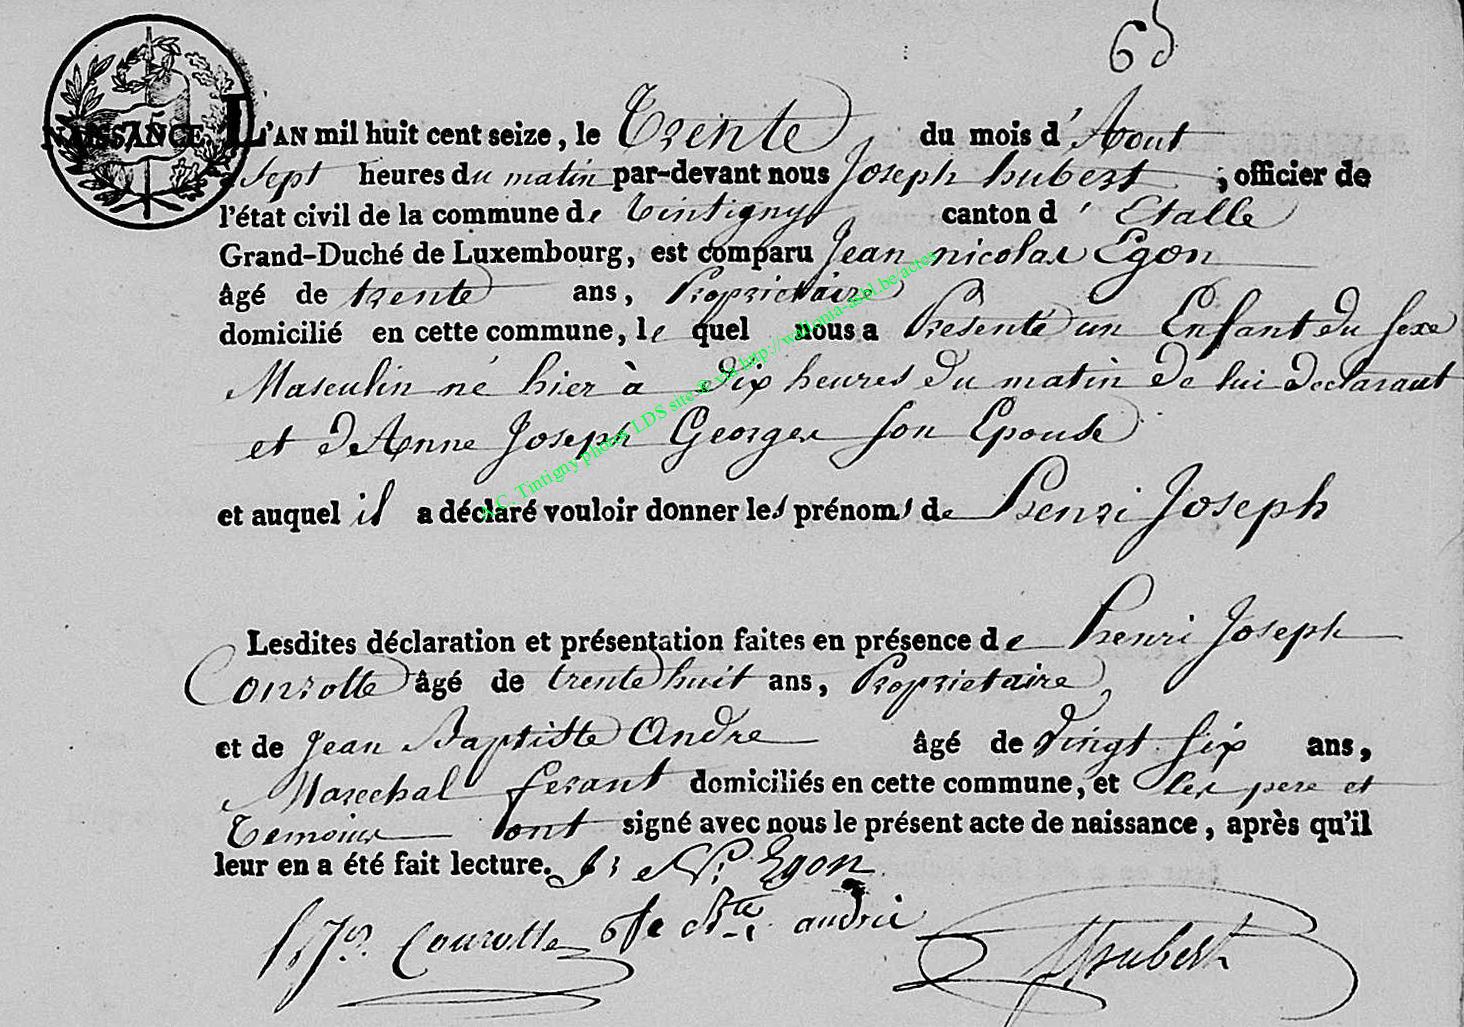 65
NAISSANCE. L'AN mil huit cent seize, le Trente du mois d'Aout
Sept heures du matin par-devant nous Joseph hubert, officier de
l'état civil de la commune de Tintigny canton d'Etalle
Grand-Duché de Luxembourg, est comparu Jean nicolas Egon
âgé de trente ans, Proprietaire
domicilié en cette commune, le quel nous a Presenté un Enfant du sexe
Masculin né hier à dix heures du matin de lui declarant
et d'Anne Joseph Georges son Epouse
et auquel il a déclaré vouloir donner les prénoms de henri Joseph
Lesdites déclaration et présentation faites en présence de henri Joseph
Conrotte âgé de trente huit ans, Proprietaire
et de Jean Baptiste Andre âgé de vingt six ans,
Marechal ferant domiciliés en cette commune, et les pere et
temoins ont signé avec nous le présent acte de naissance, après qu'il
leur en a été fait lecture. J: N: Egon
A.C. Tintigny photos LDS site via http://wallonia-asbl.be/actes
Conrotte Bte andrié Hubert